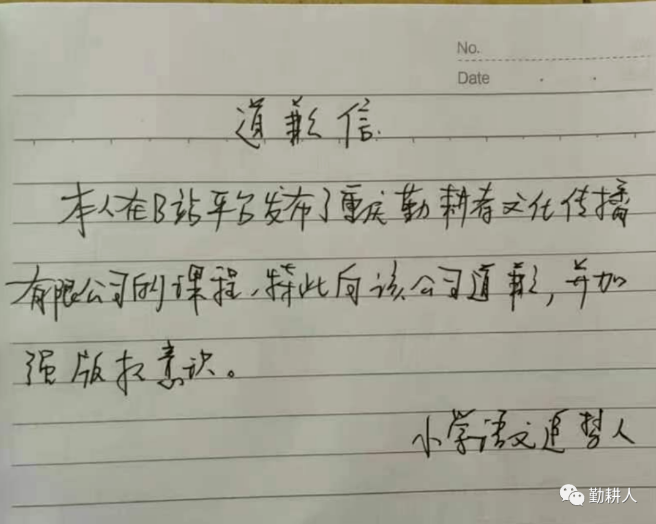 No.
Date
道歉信
本人在B站平台发布了重庆勤耕春文化传播
有限公司的课程,特此向该公司道歉,并加
强版权意识。
小学语文追梦人
勤耕人